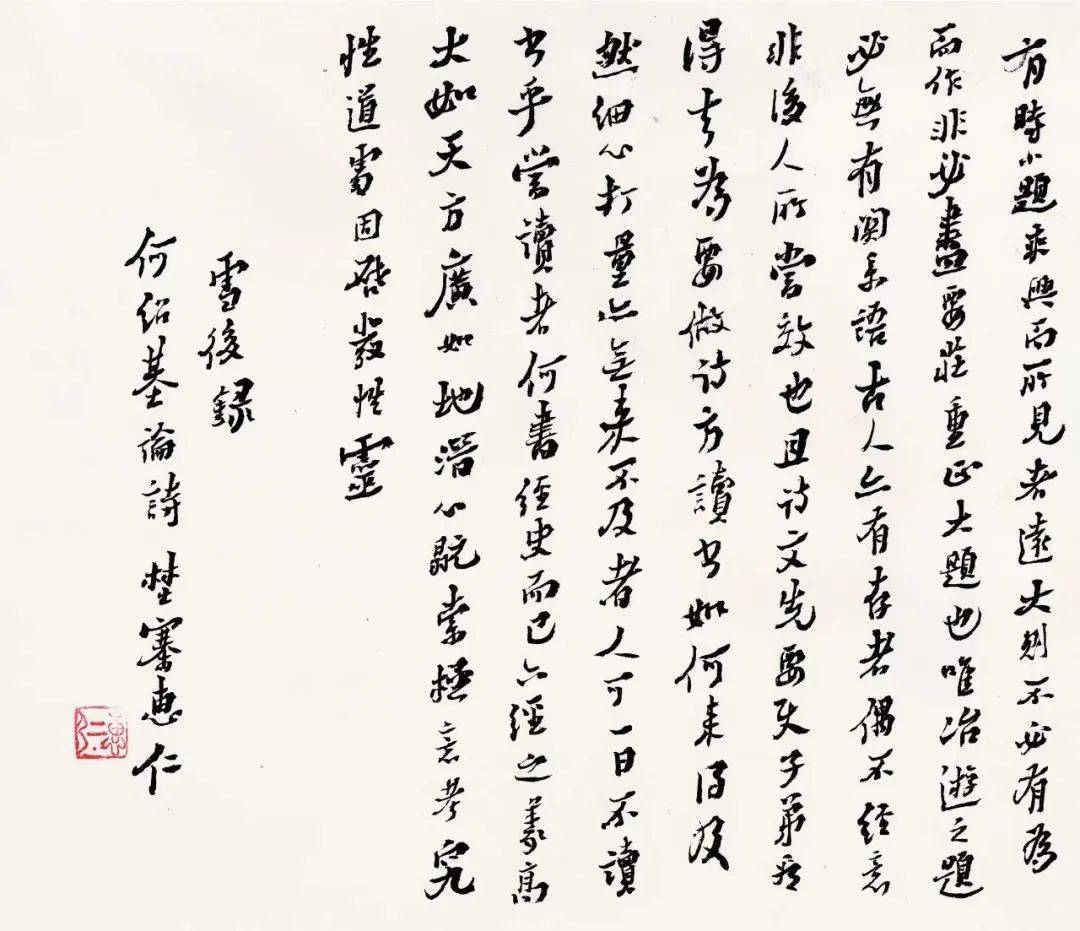 有時小題乘興而所見者遠大則不必有為
而作非必盡要莊重正大題也唯冶遊之題
必無有関系語古人亦有存者偶不經意
非後人所當效也且詩文先要天子第看
得去為要做詩方讀書如何來得及
然細心打量亦無來不及者人可一日不讀
書乎當讀者何書經史而已六經之義高
大如天方廣如地潛心玩索極意考究
性道處固啟發性靈
雪後錄
何紹基論詩 埜審惠仁
惠仁